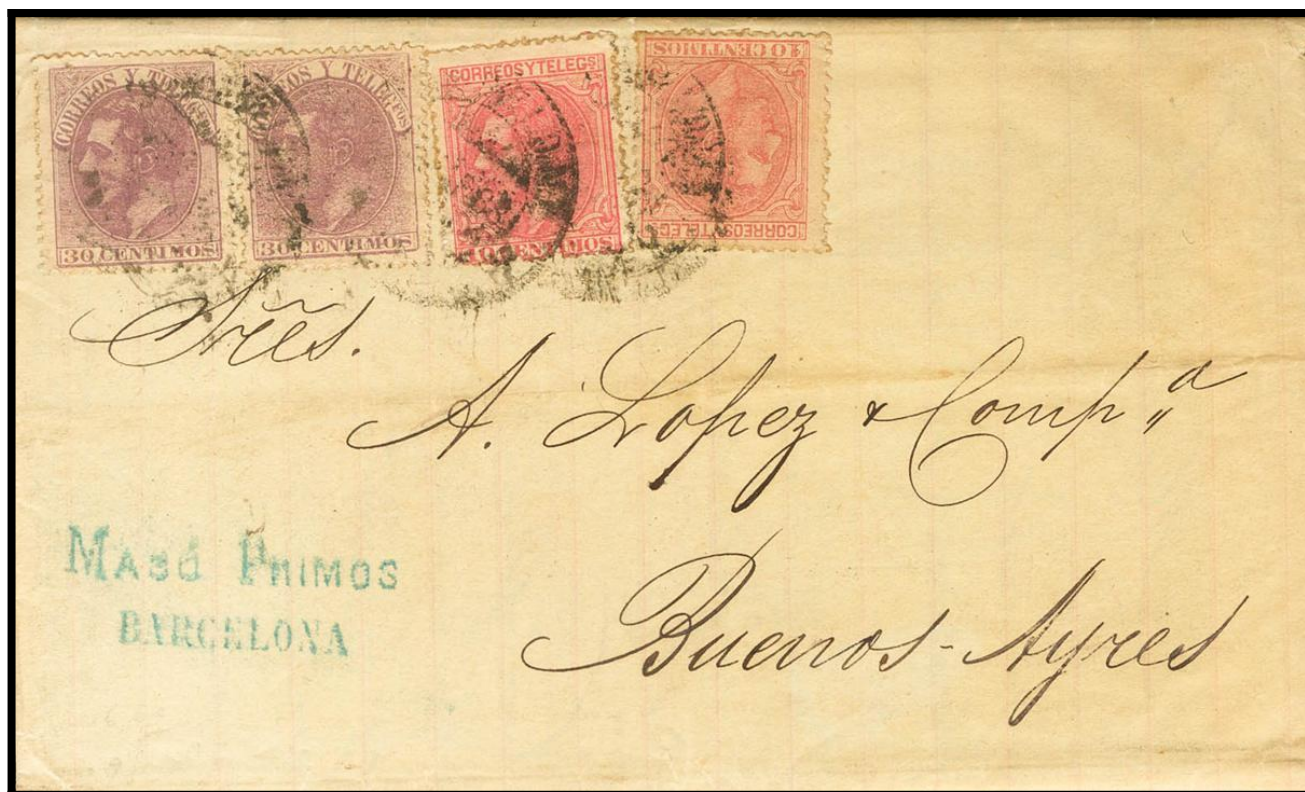 CORREOS Y TELEGFOS
30 CENTIMOS
CORREOS Y TELEGFOS
30 CENTIMOS
CORREOS Y TELEGS
10 CENTIMOS
CORREOS Y TELEGS
10 CENTIMOS
Sres.
A. Lopez & Comp.a
Buenos-Ayres
Masó Primos
BARCELONA